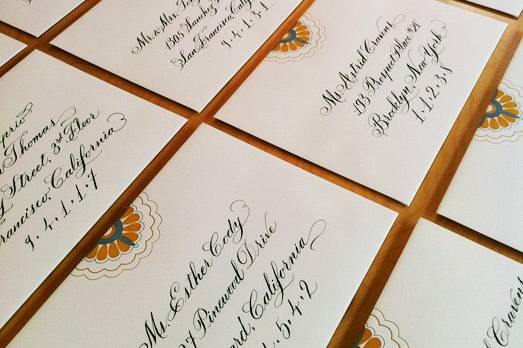 Mr. & Mrs.
1305 Sanchez
San Francisco, Cali
9.4.1.3.1
Ms. Astrid Cravens
293 Prospect Place
Brooklyn, New York
1.1.2.3.8
Thomas
Street, 3rd Floor
Francisco, California
9.4.1.1.7
Ms. Esther Cody
7 Pinewood Drive
ard, California
5.4.2
Cravens